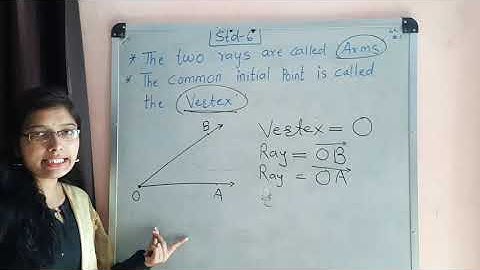 Std-6
* The two rays are called Arms
* The common initial point is called
the Vertex
B
O
A
Vertex = O
Ray = OB
Ray = OA